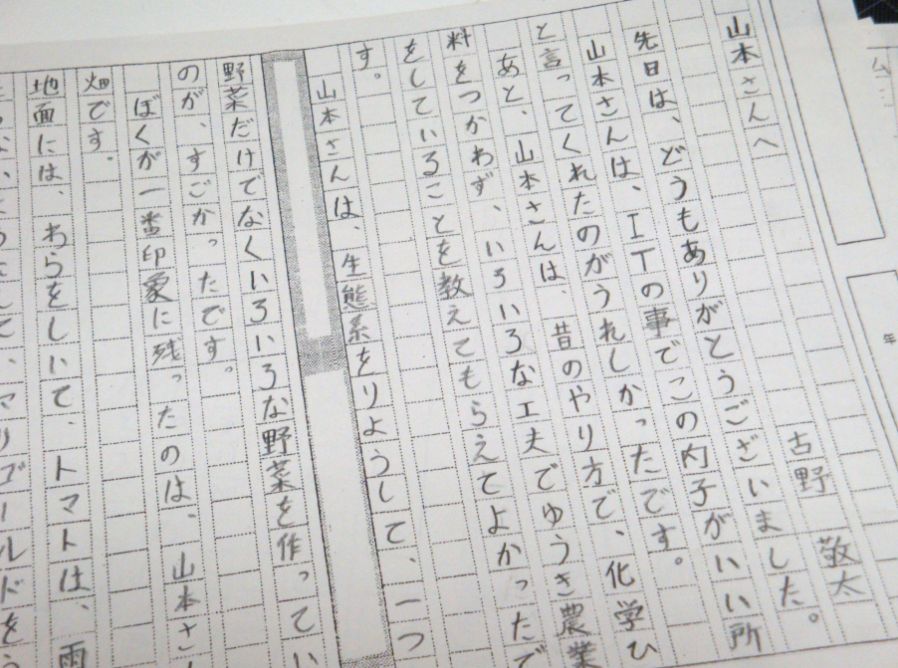 山本さんへ
古野 敬太
先日は、どうもありがとうございました。
山本さんは、ITの事でこの内子がいい所
と言ってくれたのがうれしかったです。
あと、山本さんは、昔のやり方で、化学ひ
料をつかわず、いろいろな工夫でゆうき農業
をしていることを教えてもらえてよかったで
す。
山本さんは、生態系をりようして、一つ
野菜だけでなくいろいろな野菜を作ってい
のが、すごかったです。
ぼくが一番印象に残ったのは、山本さ
畑です。
地面には、わらをしいて、トマトは、雨
年